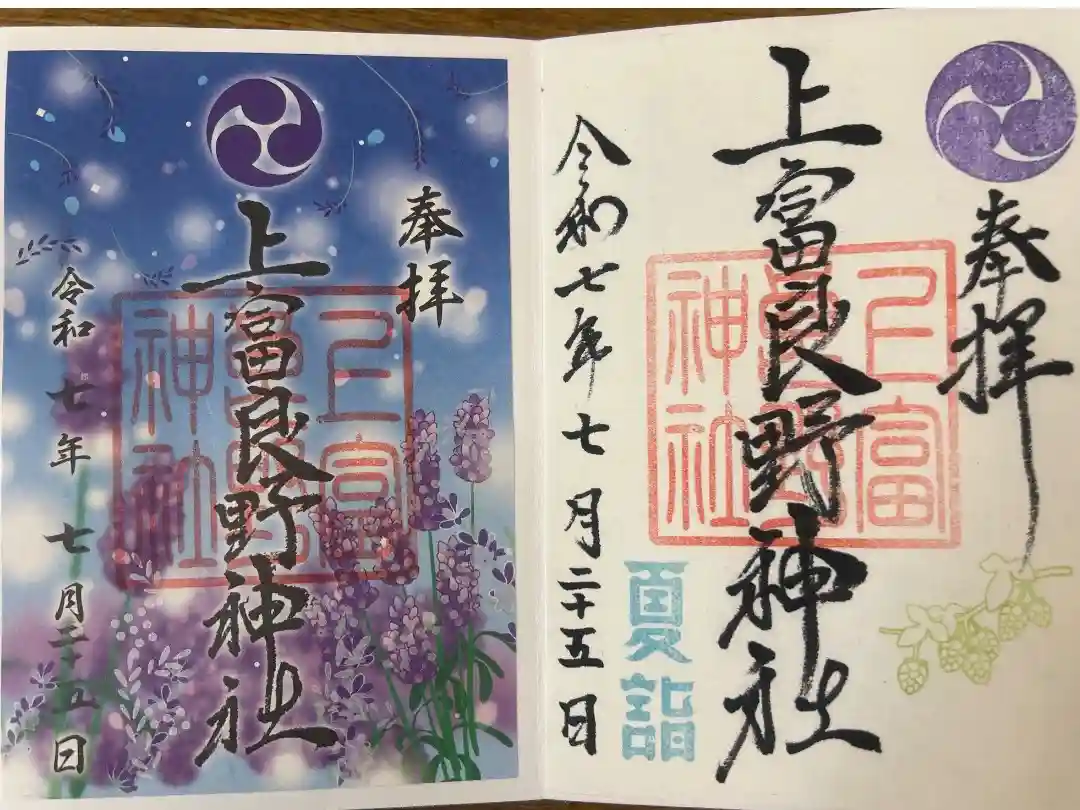 奉拝
上富良野神社
夏詣
令和七年七月二十五日
上富良野神社
奉拝
上富良野神社
令和七年七月二十五日
上富良野神社